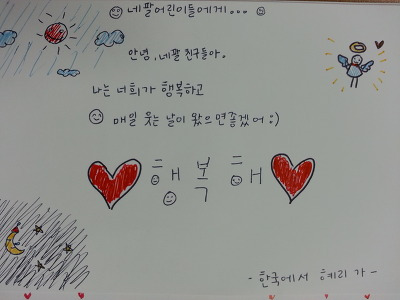 네팔어린이들에게...
안녕, 네팔 친구들아.
나는 너희가 행복하고
매일 웃는 날이 왔으면좋겠어 :)
행복해
- 한국에서 혜리가 -